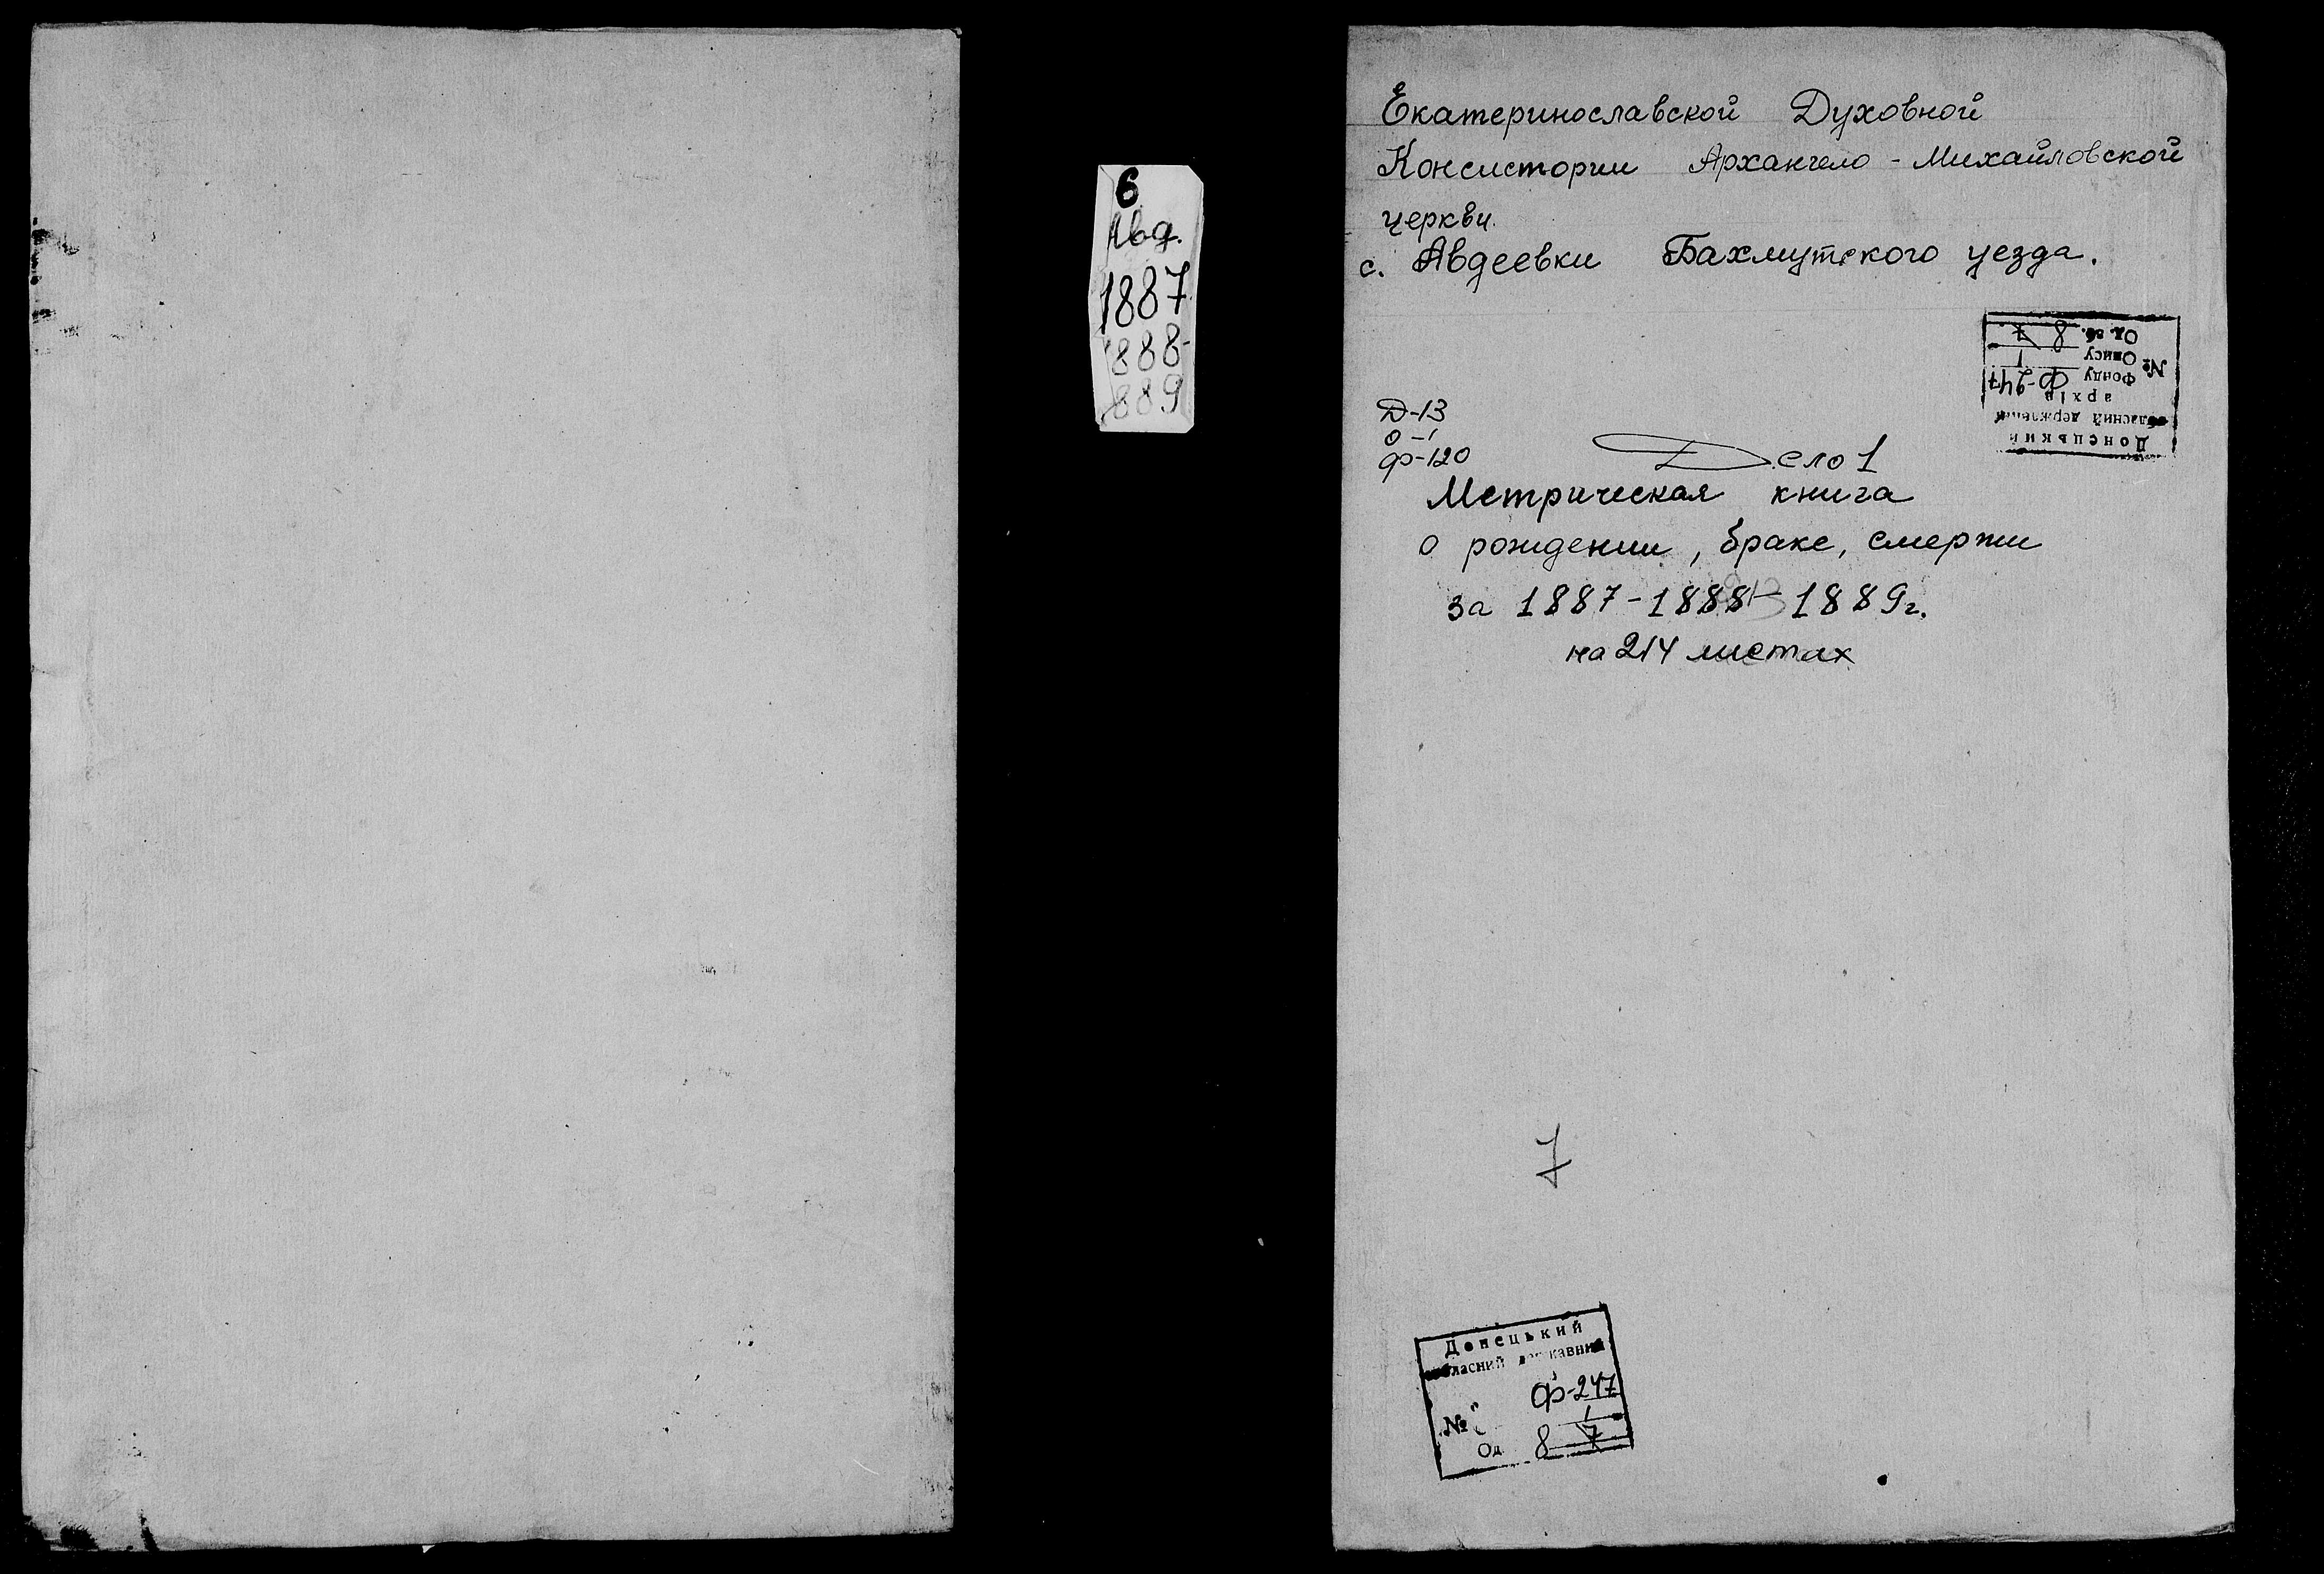 6
Авд.
1887
1888-
889
Екатеринославской Духовной
Консистории Архангело-Михайловской
церкви
с. Авдеевки Бахмутского уезда.
Донецький
обласний державний
архів
№ Фонду Ф-247
Опису 1
Од. зб. 8 7
Д-13
О-1
Ф-120
Дело 1
Метрическая книга
о рождении, браке, смерти
за 1887-1888-1889г.
на 214 листах
7
Донецький
обласний державний
Ф-247
№ 1
Од 8 7